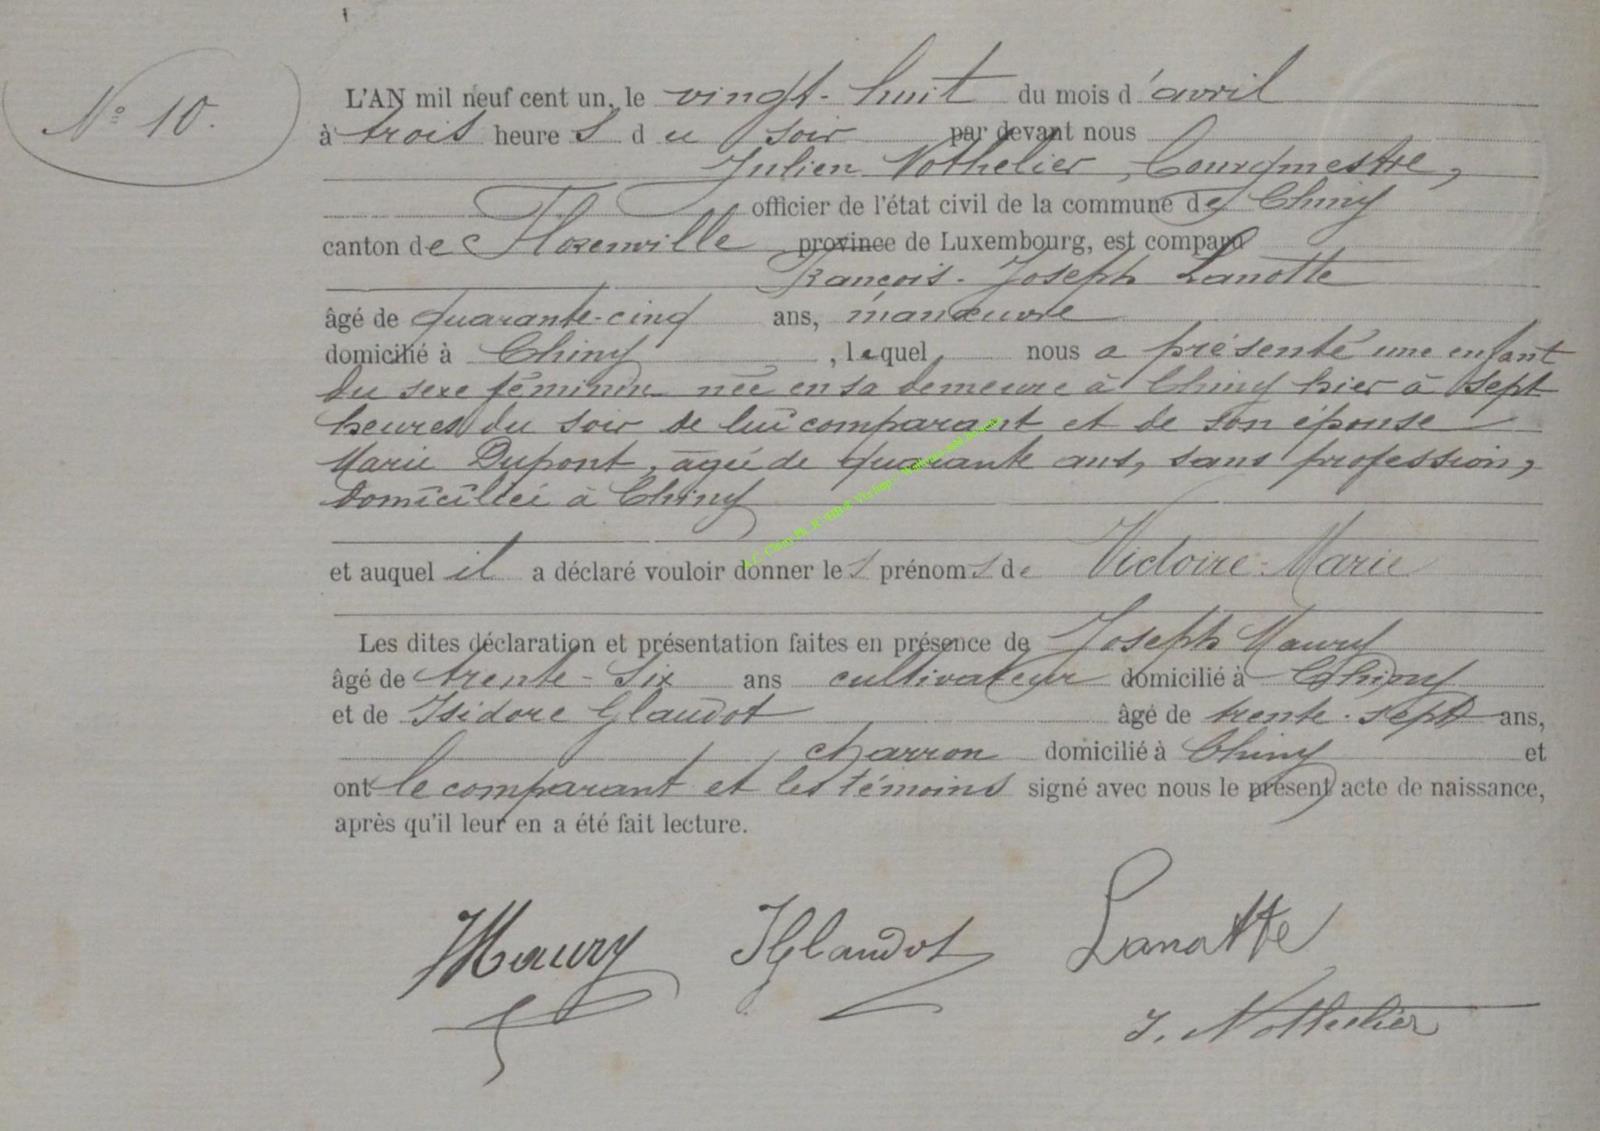 N° 10.
L'AN mil neuf cent un, le vingt-huit du mois d'avril
à trois heures du soir par devant nous
Julien Nothelier, Bourgmestre,
officier de l'état civil de la commune de Chiny
canton de Florenville province de Luxembourg, est comparu
François-Joseph Lanotte
âgé de quarante-cinq ans, manœuvre
domicilié à Chiny, lequel nous a présenté une enfant
du sexe féminin née en sa demeure à Chiny hier à sept
heures du soir de lui comparant et de son épouse
Marie Dupont, âgée de quarante ans, sans profession,
domiciliée à Chiny
et auquel il a déclaré vouloir donner les prénoms de Victoire-Marie
Les dites déclaration et présentation faites en présence de Joseph Maury
âgé de trente-six ans cultivateur domicilié à Chiny
et de Isidore Glaudot âgé de trente-sept ans,
charron domicilié à Chiny et
ont le comparant et les témoins signé avec nous le présent acte de naissance,
après qu'il leur en a été fait lecture.
JMaury IGlaudot Lanotte
J. Nothelier